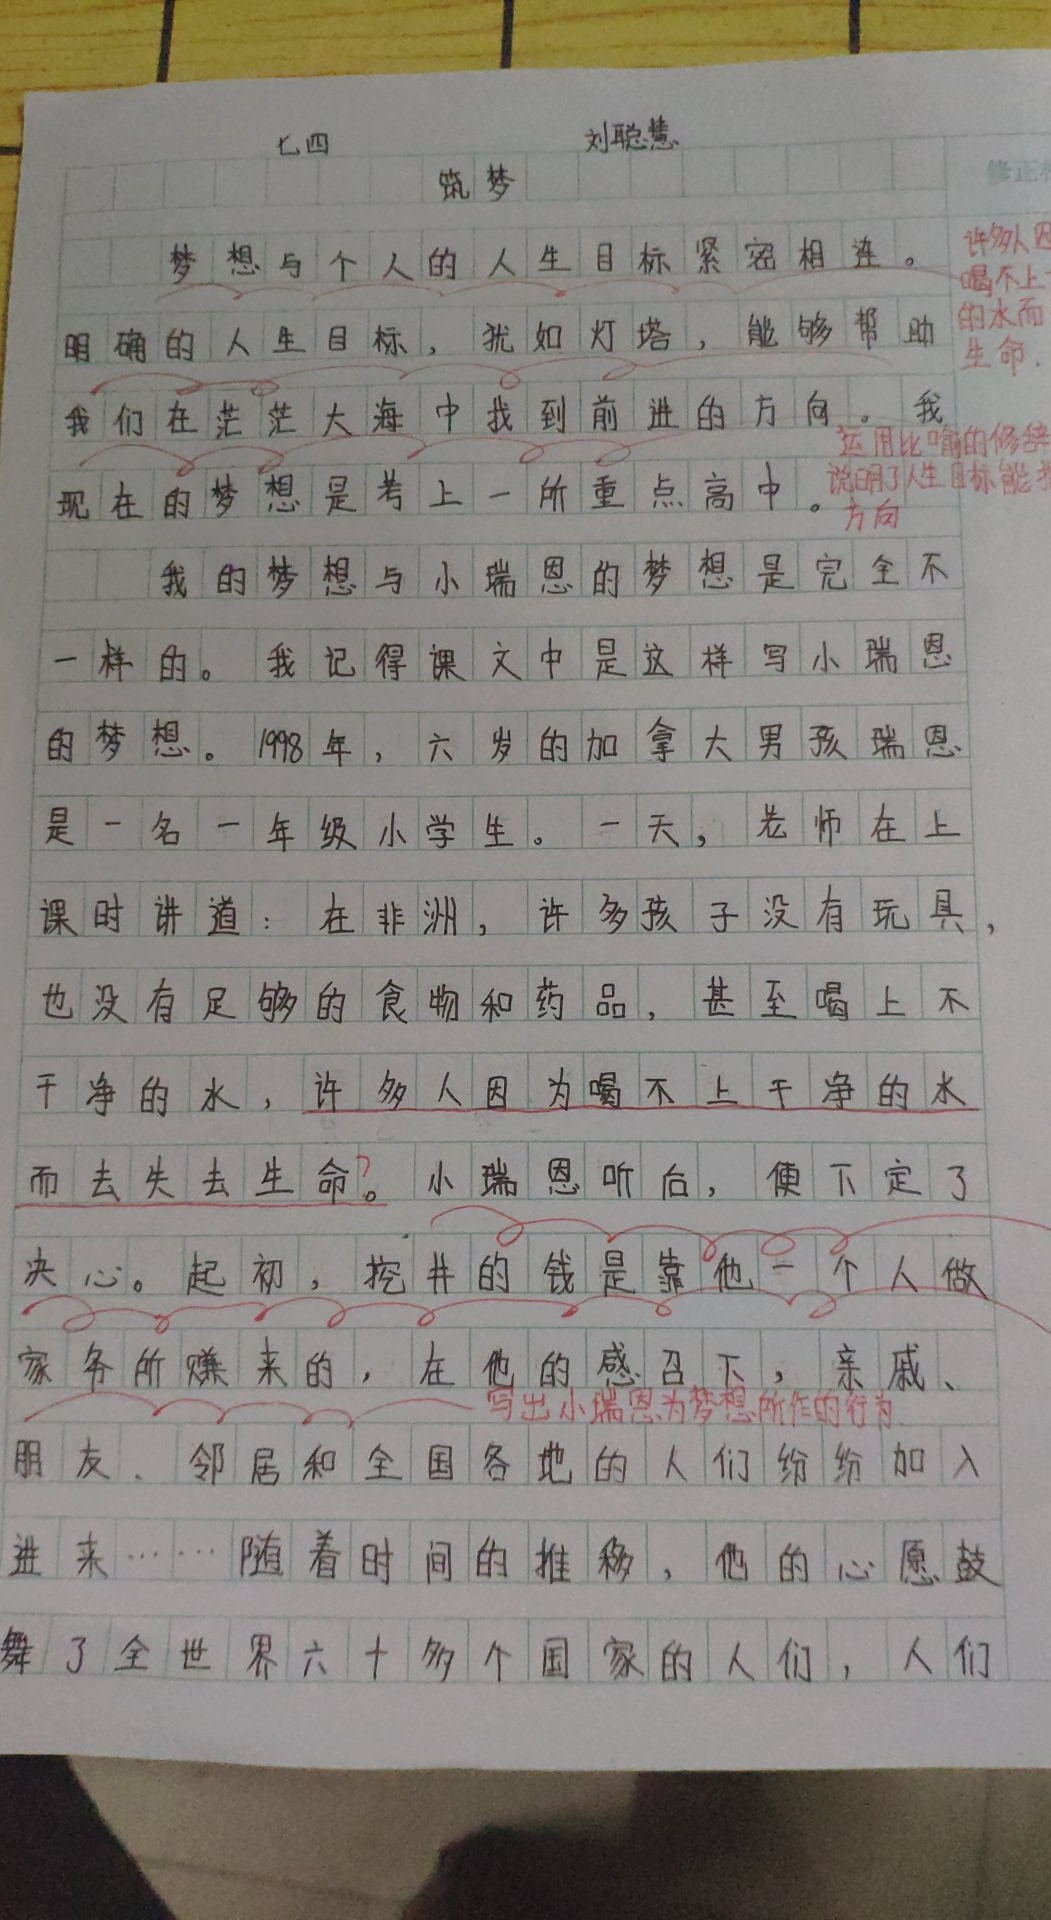 七四 刘聪慧
筑梦
修正
梦想与个人的人生目标紧密相连。
许多人因
喝不上
的水而
生命.
明确的人生目标，犹如灯塔，能够帮助
我们在茫茫大海中找到前进的方向。我
运用比喻的修辞
说明了人生目标能
方向
现在的梦想是考上一所重点高中。
我的梦想与小瑞恩的梦想是完全不
一样的。我记得课文中是这样写小瑞恩
的梦想。1998年，六岁的加拿大男孩瑞恩
是一名一年级小学生。一天，老师在上
课时讲道：在非洲，许多孩子没有玩具，
也没有足够的食物和药品，甚至喝上不
干净的水，许多人因为喝不上干净的水
而去失去生命？。小瑞恩听后，便下定了
决心。起初，挖井的钱是靠他一个人做
家务所赚来的，在他的感召下，亲戚、
写出小瑞恩为梦想所作的行为
朋友、邻居和全国各地的人们纷纷加入
进来……随着时间的推移，他的心愿鼓
舞了全世界六十多个国家的人们，人们